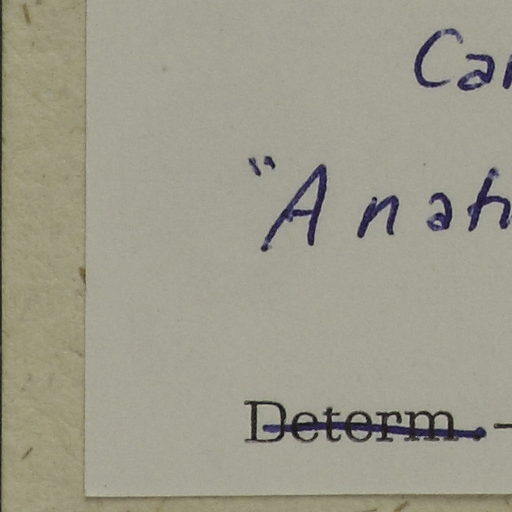 Car
"Anath
Determ. -